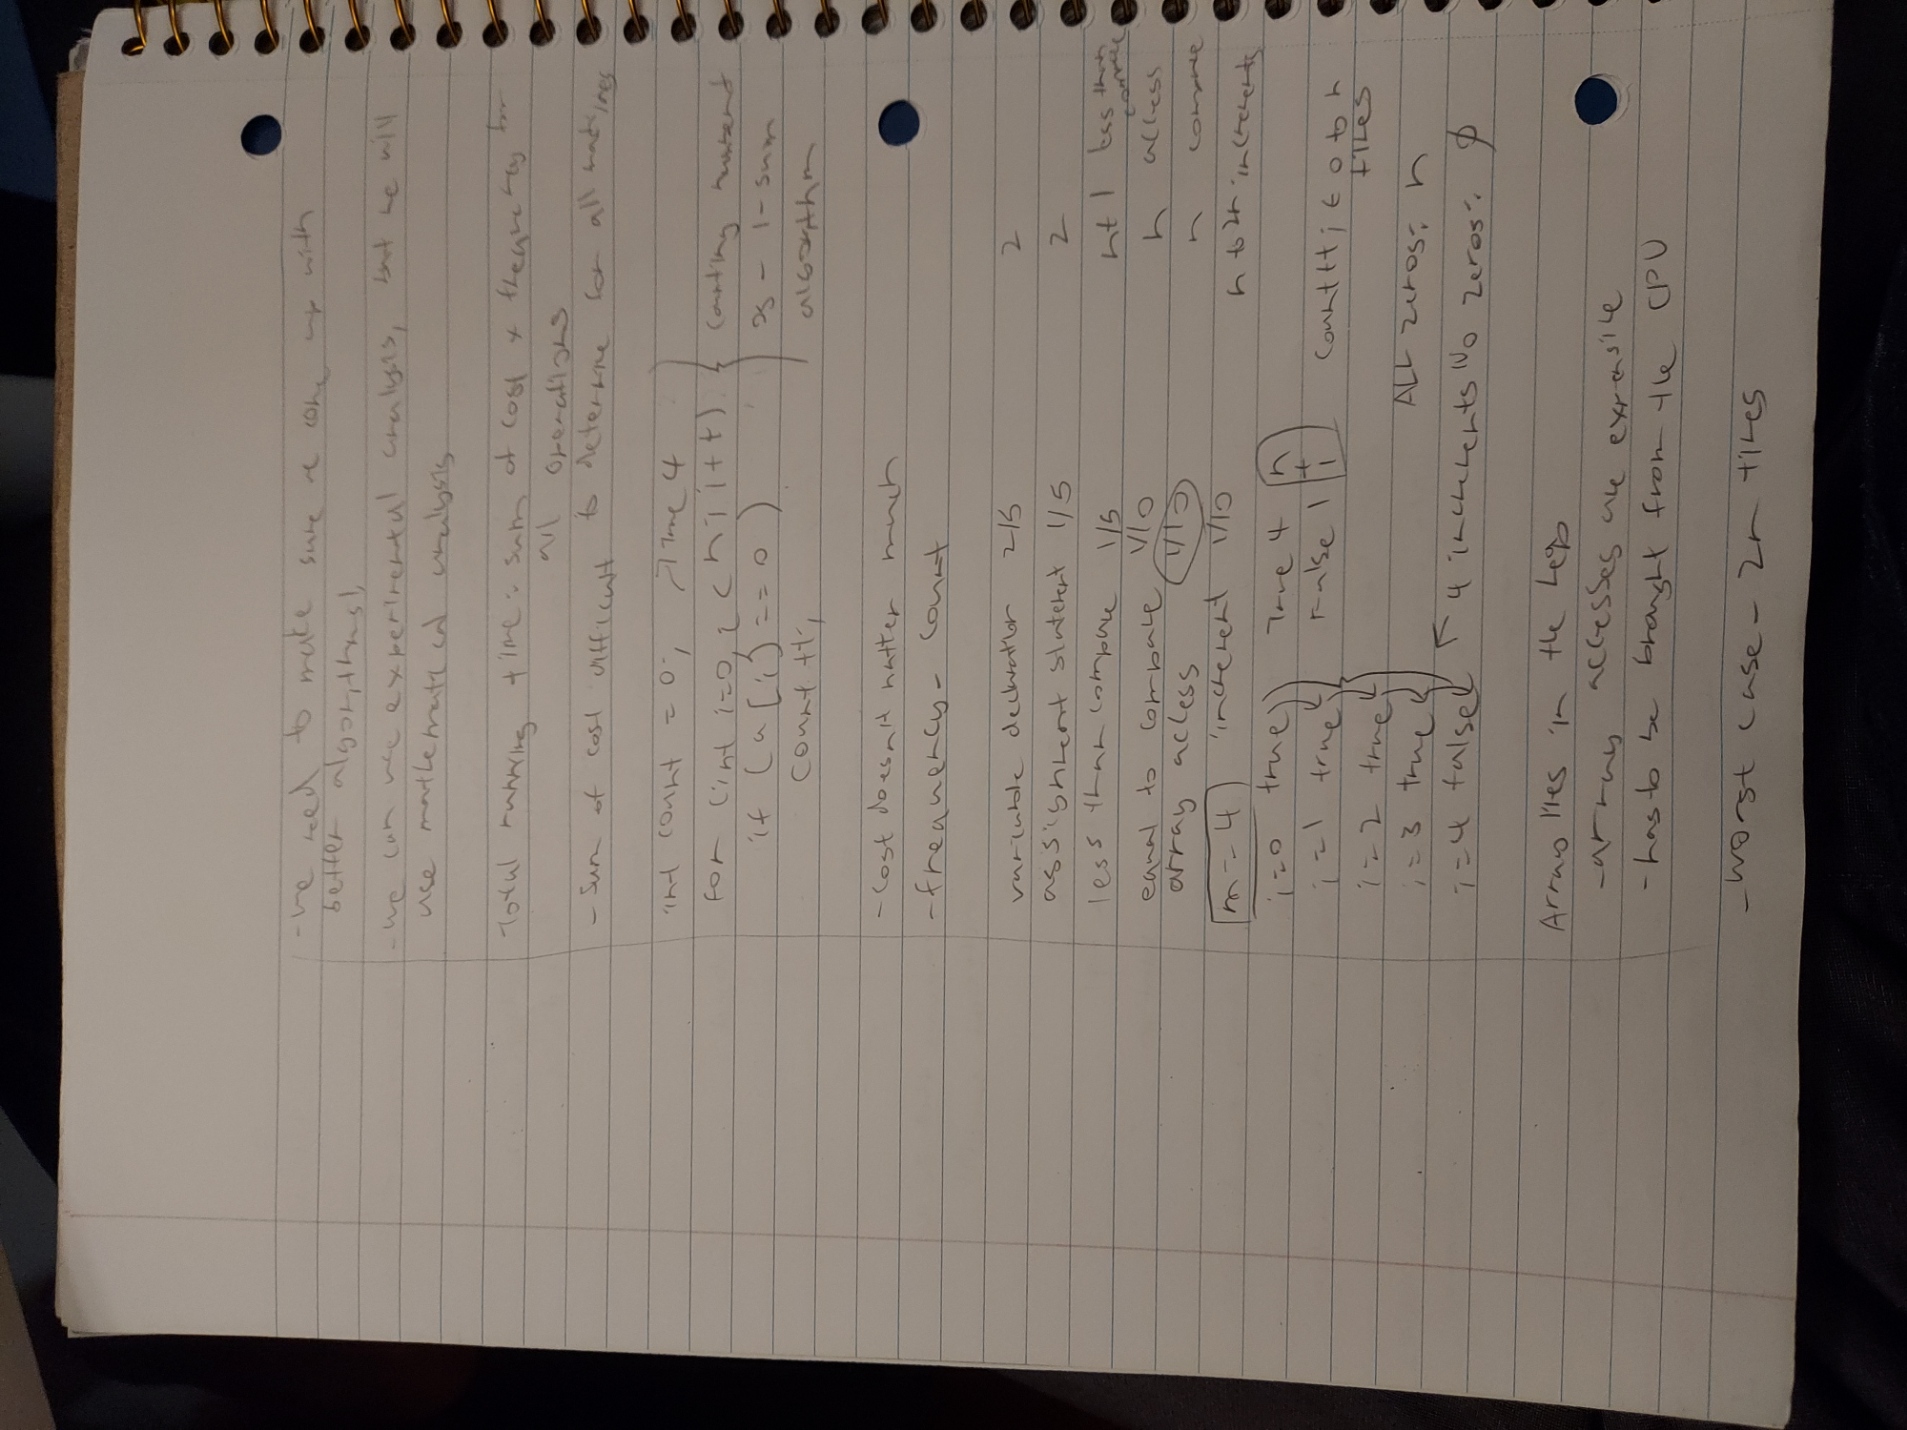 - we need to make sure we come up with
better algorithms!
- we can use experimental analysis, but we will
use mathematical analysis
- Total running time: sum of cost x frequency for
all operations
- sum of cost difficult to determine for all machines
int count = 0; n = 4
for (int i=0; i < n; i++) {
if (a[i] == 0)
count ++;
counting zeros
1-sum
algorithm
- cost doesn't matter much
- frequency - count
variable declaration 2/5 2
assignment statement 1/5 2
less than compare 1/5 n+1 less than compare
equal to compare 1/10 n access
array access 1/10 n compare
n=4 increment 1/10 n to 2n increments
i=0 true True 4 n
i=1 true False 1 + 1 count++; 0 to n
times
i=2 true
i=3 true ALL zeros: n
i=4 false 4 increments No zeros: ϕ
Array lies in the heap
- array accesses are expensive
- has to be brought from the CPU
- worst case - 2n times